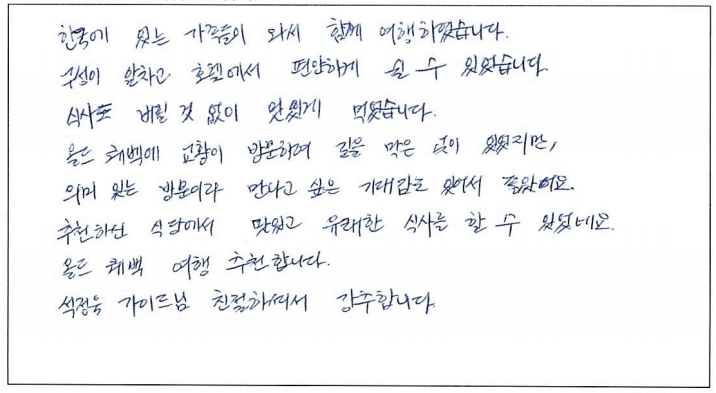 한국에 있는 가족들이 와서 함께 여행하였습니다.
구성이 알차고 호텔에서 편안하게 쉴 수 있었습니다.
식사도 버릴 것 없이 맛있게 먹었습니다.
올드 퀘벡에 교황이 방문하여 길을 막은 곳이 있었지만,
의미 있는 방문이라 만나고 싶은 기대감도 있어서 좋았어요.
추천하신 식당에서 맛있고 유쾌한 식사를 할 수 있었네요.
올드 퀘벡 여행 추천합니다.
석정욱 가이드님 친절하셔서 강추합니다.